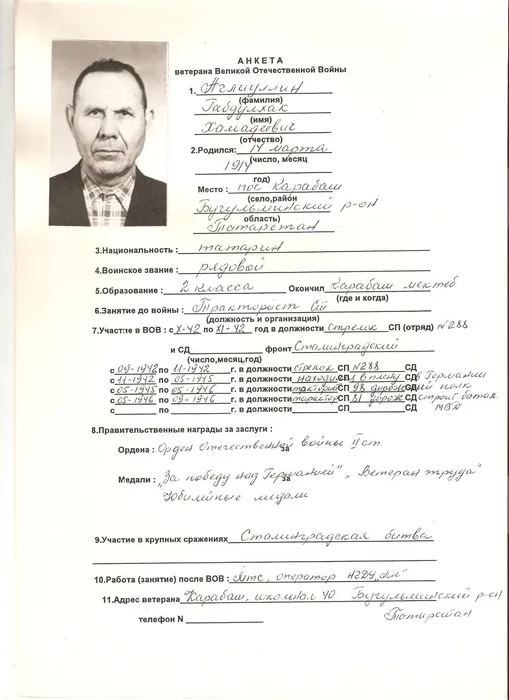 АНКЕТА
ветерана Великой Отечественной Войны
1. Аглиуллин
(фамилия)
Габдулхак
(имя)
Хамадеевич
(отчество)
2.Родился: 14 марта
(число, месяц
1914
год)
Место: пос Карабаш
(село,район
Бугульминский р-он
область)
Татарстан
3.Национальность: татарин
4.Воинское звание: рядовой
5.Образование: 2 класса Окончил Карабаш мектеб
(где и когда)
6.Занятие до войны: Тракторист
(должность и организация)
7.Участие в ВОВ: с X-42 по XI-42 год в должности Стрелок СП (отряд) №288
и СД фронт Сталинградский
(число,месяц,год)
с 09-1942 по 11-1942 г. в должности стрелок СП №288 СД
с 11-1942 по 05-1945 г. в должности находился в плену СП СД в Германии
с 05-1945 по 05-1946 г. в должности СП 98 СД полк
с 05-1946 по 09-1946 г. в должности СП 81 СД строит батал
с по г. в должности СП СД МВО
8.Правительственные награды за заслуги:
Ордена: Орден Отечественной войны II ст
за
Медали: "За победу над Германией", "Ветеран труда"
за
Юбилейные медали
9.Участие в крупных сражениях Сталинградская битва
10.Работа (занятие) после ВОВ: МТС, оператор НГДУ
11.Адрес ветерана Карабаш, школьная 40 Бугульминский р-он
Татарстан
телефон N